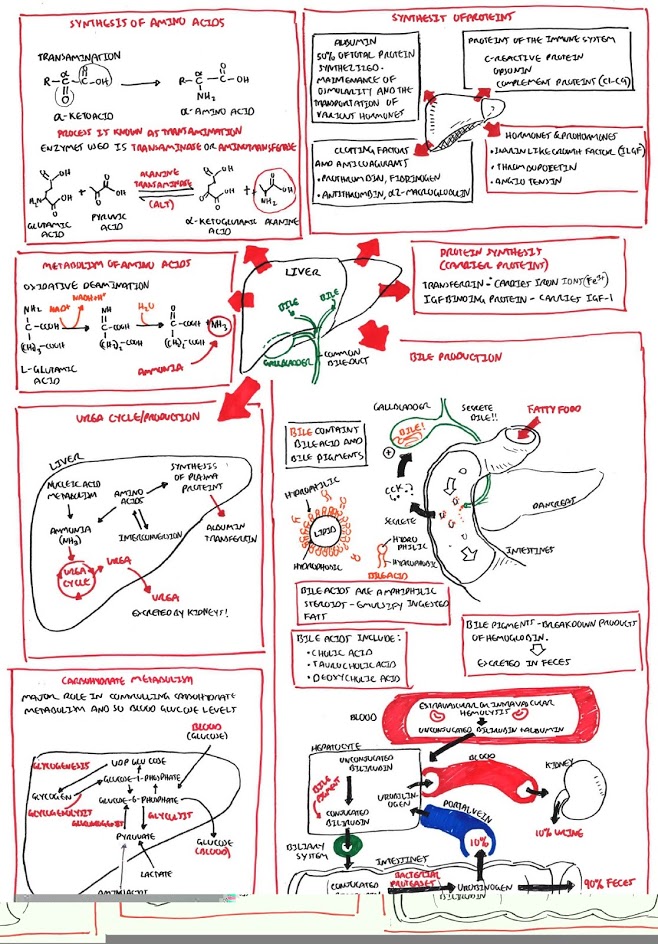 SYNTHESIS OF AMINO ACIDS
TRANSAMINATION
R-C-C-OH
O
R-C-C-OH
NH2
α-KETOACID
α-AMINO ACID
PROCESS IS KNOWN AS TRANSAMINATION
ENZYMES USED IS TRANSAMINASE OR AMINOTRANSFERASE
ALANINE
TRANSAMINASE
(ALT)
GLUTAMIC
ACID
PYRUVIC
ACID
α-KETOGLUTARIC
ACID
ALANINE
SYNTHESIS OF PROTEINS
ALBUMIN
50% OF TOTAL PROTEIN
SYNTHESIZED.
MAINTENANCE OF
OSMOLARITY AND THE
TRANSPORTATION OF
VARIOUS HORMONES
PROTEINS OF THE IMMUNE SYSTEM
C-REACTIVE PROTEIN
OPSONIN
COMPLEMENT PROTEINS (C1-C9)
CLOTTING FACTORS
AND ANTICOAGULANTS
• PROTHROMBIN, FIBRINOGEN
• ANTITHROMBIN, α2-MACROGLOBULIN
HORMONES & PROHORMONES
• INSULIN LIKE GROWTH FACTOR (ILGF)
• THROMBOPOIETIN
• ANGIOTENSIN
METABOLISM OF AMINO ACIDS
OXIDATIVE DEAMINATION
NH2
C-COOH
(CH2)2-COOH
NAD+
NADH+H+
NH
C-COOH
(CH2)2-COOH
H2O
O
C-COOH
(CH2)2-COOH
+NH3
L-GLUTAMIC
ACID
AMMONIA
LIVER
BILE
BILE
GALLBLADDER
COMMON
BILE DUCT
PROTEIN SYNTHESIS
(CARRIER PROTEINS)
TRANSFERRIN - CARRIES IRON IONS (Fe3+)
IGF BINDING PROTEIN - CARRIES IGF-1
UREA CYCLE/PRODUCTION
LIVER
NUCLEIC ACID
METABOLISM
AMINO
ACIDS
SYNTHESIS
OF PLASMA
PROTEINS
AMMONIA
(NH3)
INTERCONVERSION
ALBUMIN
TRANSFERRIN
UREA
CYCLE
UREA
UREA
EXCRETED BY KIDNEYS!
BILE PRODUCTION
BILE CONTAINS
BILE ACID AND
BILE PIGMENTS
GALLBLADDER
SECRETE
BILE!!
BILE!
FATTY FOOD
CCK
SECRETE
PANCREAS
INTESTINES
HYDROPHILIC
LIPID
HYDROPHOBIC
HYDRO
PHILIC
HYDROPHOBIC
BILE ACID
BILE ACIDS ARE AMPHIPHILIC
STEROIDS - EMULSIFY INGESTED
FATS
BILE ACIDS INCLUDE:
• CHOLIC ACID
• TAUROCHOLIC ACID
• DEOXYCHOLIC ACID
BILE PIGMENTS - BREAKDOWN PRODUCTS
OF HEMOGLOBIN.
EXCRETED IN FECES
CARBOHYDRATE METABOLISM
MAJOR ROLE IN CONTROLLING CARBOHYDRATE
METABOLISM AND SO BLOOD GLUCOSE LEVELS
BLOOD
(GLUCOSE)
GLYCOGENESIS
UDP GLUCOSE
GLUCOSE-1-PHOSPHATE
GLYCOGEN
GLYCOGENOLYSIS
GLUCOSE-6-PHOSPHATE
GLYCOLYSIS
PYRUVATE
GLUCOSE
(BLOOD)
LACTATE
BLOOD
EXTRAVASCULAR OR INTRAVASCULAR
HEMOLYSIS
UNCONJUGATED BILIRUBIN + ALBUMIN
HEPATOCYTE
UNCONJUGATED
BILIRUBIN
BILE
PIGMENTS
CONJUGATED
BILIRUBIN
UROBILIN
OGEN
BLOOD
KIDNEY
PORTAL VEIN
10%
10% URINE
BILIARY
SYSTEM
INTESTINES
CONJUGATED
BACTERIAL
PROTEASES
UROBINOGEN
90% FECES